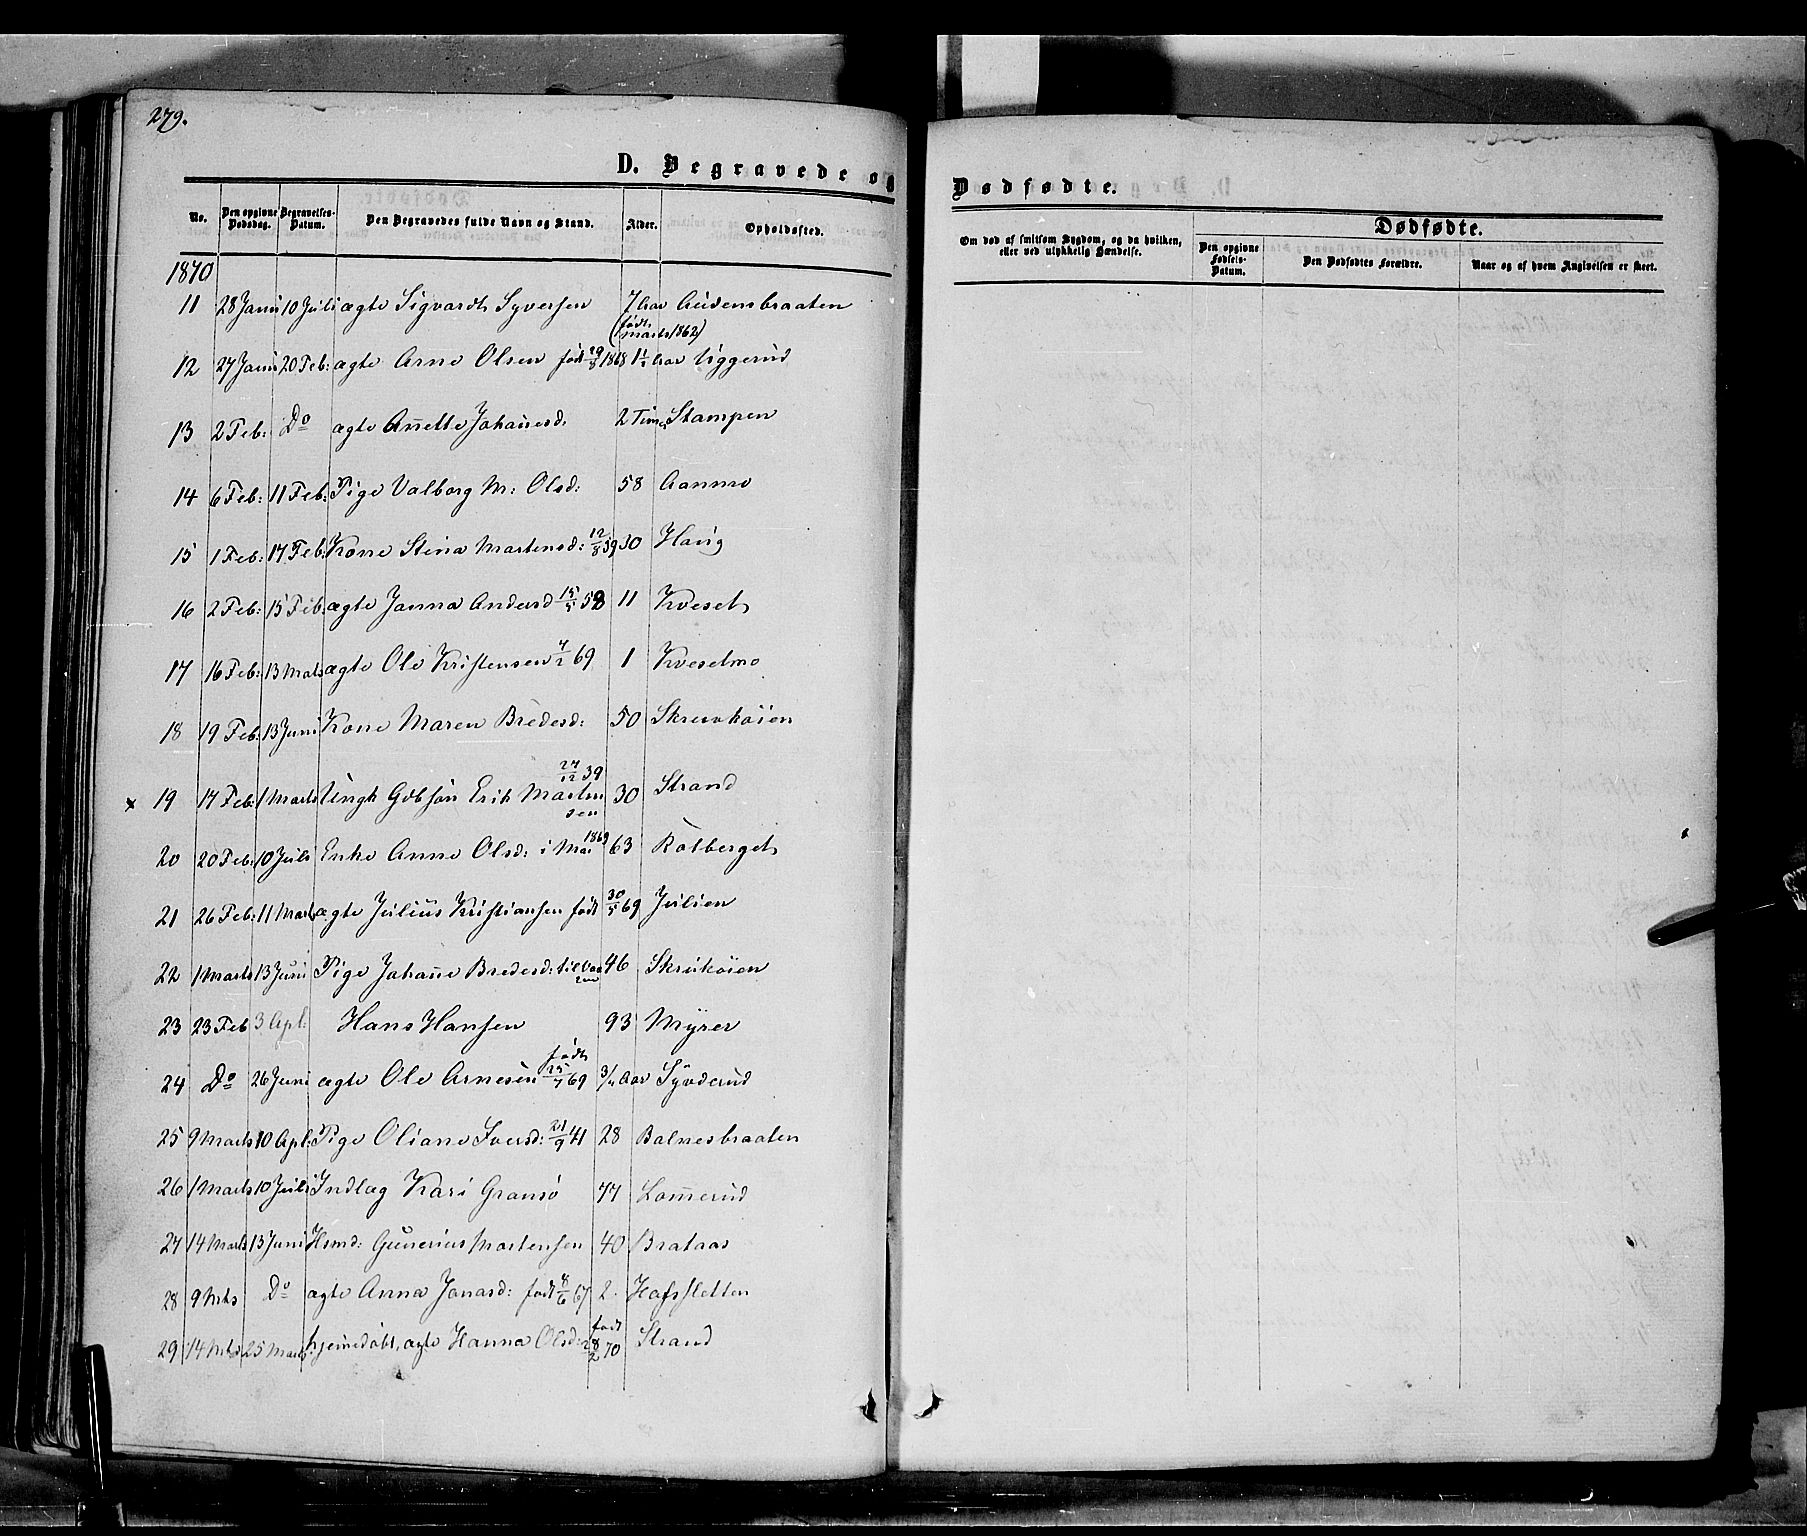 279.
D. Begravede og
Dødfødte.
No. Den opgivne Dødsdag. Begravelses-Datum. Den Begravedes fulde Navn og Stand. Alder. Opholdssted.
Om død af smitsom Sygdom, og da hvilken, eller ved ulykkelig Hændelse.
Dødfødte.
Den opgivne Fødsels-Datum. Den Dødfødtes Forældre. Naar og af hvem Angivelsen er skeet.
1870
11 28 Janu 10 Juli ægte Sigvardt Syversen 7 Aar Audensbraaten
(født Marts 1862)
12 27 Janu 20 Feb: ægte Arne Olsen født 29/8 1868 1½ Aar Uggerud
13 2 Feb: Do ægte Anette Johannesd. 2 Timer Stampen
14 6 Feb: 11 Feb: Pige Valborg M: Olsd: 58 Aanmo
15 1 Feb: 17 Feb: Kone Stina Martensd: 12/8 39 30 Haug
16 2 Feb: 15 Feb: ægte Janna Andersd 15/5 58 11 Kveset
17 16 Feb: 13 Mats ægte Ole Kristensen 7/2 69 1 Kvesetmo
18 19 Feb: 13 Juni Kone Maren Bredesd: 50 Skruvkøien
27/12 39
x 19 17 Feb: 1 Marts Ungk Gdbsøn Erik Marten 30 Strand
sen
20 20 Feb: 10 Juli Enke Anne Olsd: i Mai 1869 63 Kolberget
21 26 Feb: 11 Marts ægte Julius Kristiansen født 30/5 69 Julien
22 1 Marts 13 Juni Pige Johane Bredesd: 46 Skrukøien
23 23 Feb 3 Apl: Hans Hansen 93 Myrer
født
24 Do 26 Juni ægte Ole Arnesen 25/7 69 3/4 Aar Syverud
25 9 Marts 10 Apl: Pige Oliane Iversd: 21/9 41 28 Balnesbraaten
26 1 Marts 10 Juli Indlæg Kari Gransø 77 Lommerud
27 14 Marts 13 Juni Hsmd: Gunerius Martensen 40 Brataas
28 9 Mts Do ægte Anna Jonasd: født 8/6 67 2. Hofsfletten
født
29 14 Mts 25 Marts hjemedøbt, ægte Hanna Olsd: 28/2 70 Strand